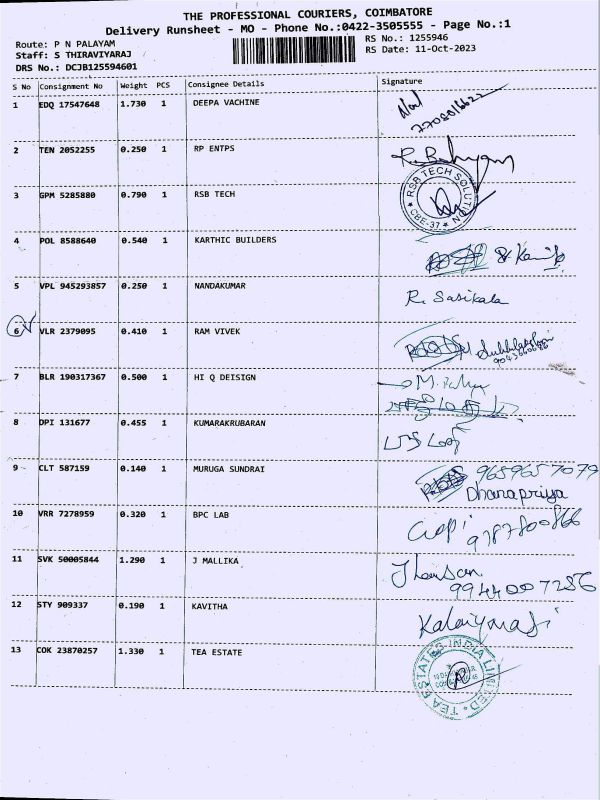 THE PROFESSIONAL COURIERS, COIMBATORE
Delivery Runsheet - MO - Phone No.:0422-3505555 - Page No.:1
Route: P N PALAYAM
RS No.: 1255946
Staff: S THIRAVIYARAJ
RS Date: 11-Oct-2023
DRS No.: DCJB125594601
S No Consignment No Weight PCS Consignee Details Signature
1 EDQ 17547648 1.730 1 DEEPA VACHINE
2 TEN 2052255 0.250 1 RP ENTPS
3 GPM 5285880 0.790 1 RSB TECH
RSB TECH SOLUTION
CBE-37
4 POL 8588640 0.540 1 KARTHIC BUILDERS
5 VPL 945293857 0.250 1 NANDAKUMAR R. Sasikala
6 VLR 2379095 0.410 1 RAM VIVEK
7 BLR 190317367 0.500 1 HI Q DEISIGN
8 DPI 131677 0.455 1 KUMARAKRUBARAN
9 CLT 587159 0.140 1 MURUGA SUNDRAI 9659657079
Dhanapriya
10 VRR 7278959 0.320 1 BPC LAB Gopi
9787800866
11 SVK 50005844 1.290 1 J MALLIKA
9944007286
12 STY 909337 0.190 1 KAVITHA
13 COK 23870257 1.330 1 TEA ESTATE
TEA ESTATES INDIA LIMITED